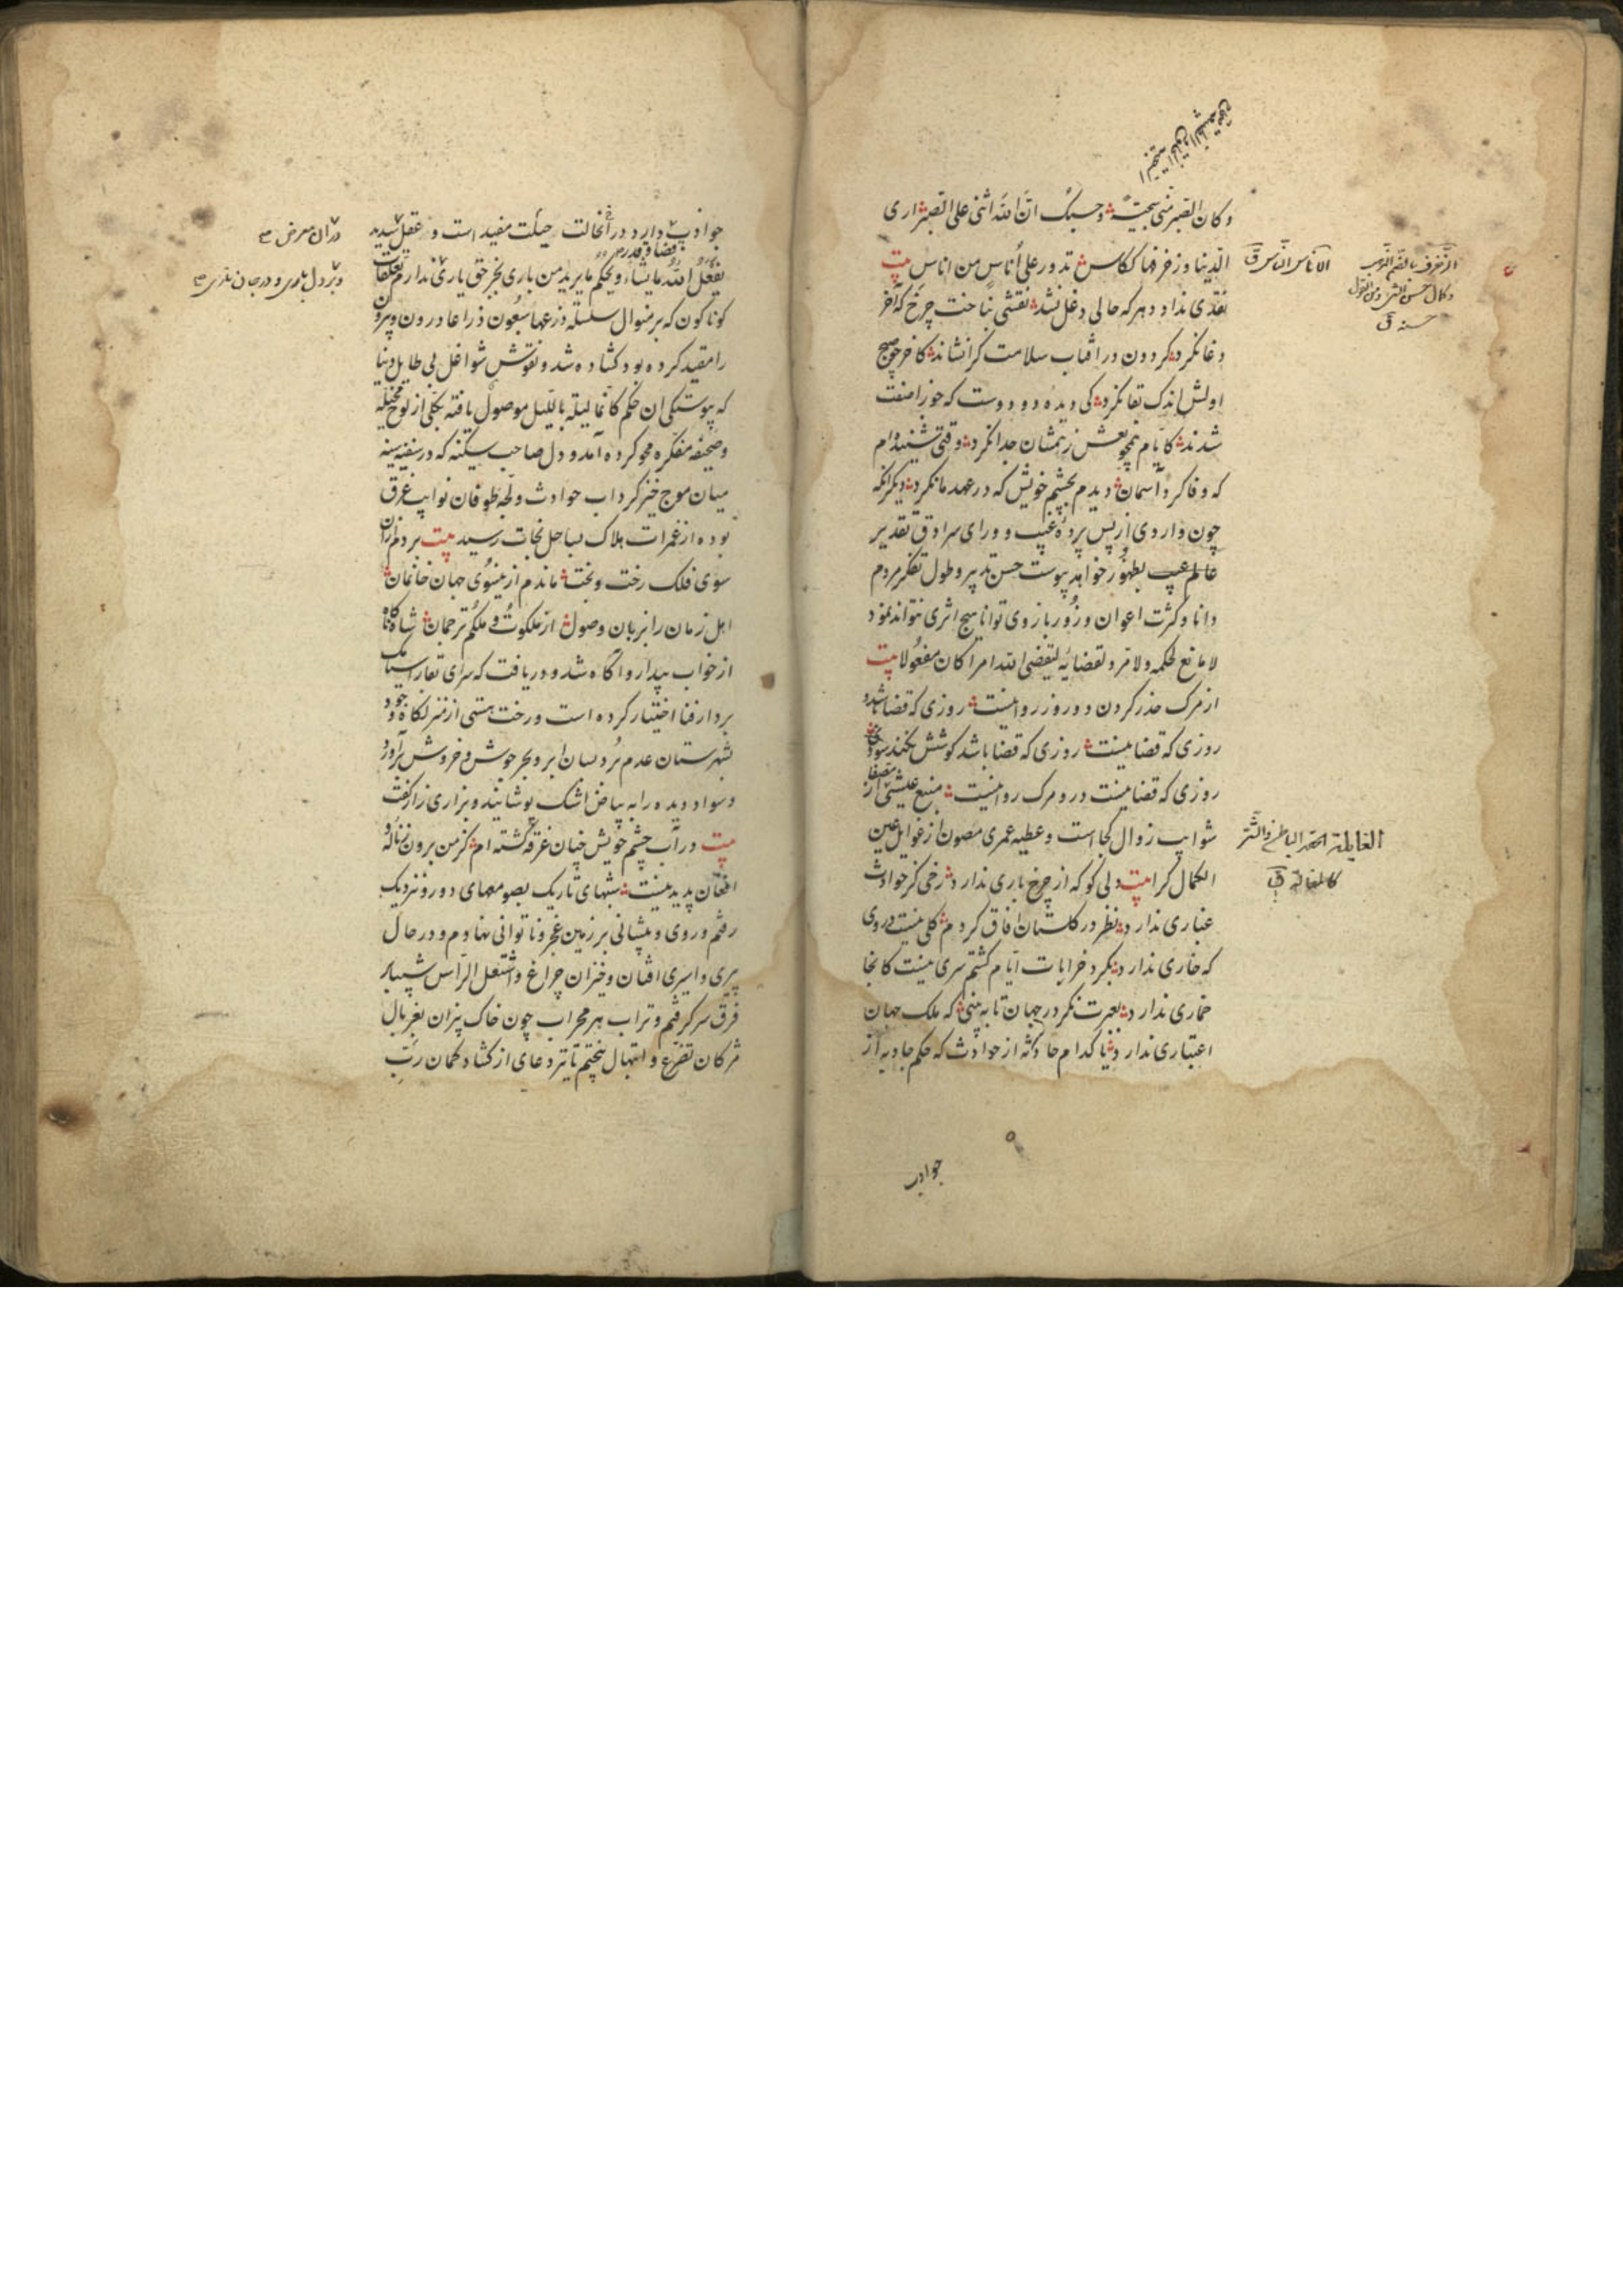 وكان الصبر منى سجية وحسبك ان الله اثنى على الصبر ارى
الدنيا وزخرفها ككاس تدور على أناس من اناس بيت
نقدى نداد دهر كه حالى دغل نشد نقشى نباخت چرخ كه آخر
دغا نكرد كردون در افتاب سلامت كرا نشاند كاخر چو صبح
اولش اندك بقا نكرد كى ديده دو دوست كه جوزا صفت
شدند كايام همچو نعش ز همشان جدا نكرد وقتى شنيده ام
كه وفا كرد آسمان ديدم بچشم خويش كه در عهد ما نكرد ديكر انكه
چون واردى از پس پرده غيب و وراى سرادق تقدير
بظهور خواهد پيوست حسن تدبير وطول تفكر مردم
دانا وكثرت اعوان وزور بازوى توانا هيچ اثرى نتواند نمود
لا مانع لحكمه ولا مرد لقضائه ليقضى الله امرا كان مفعولا بيت
از مرك حذر كردن دو روز روا نيست روزى كه قضا باشد و
روزى كه قضا نيست روزى كه قضا باشد كوشش نكند سود
روزى كه قضا نيست درو مرك روا نيست منبع عيشى از
شوايب زوال كجا است وعطيه عمرى مصون از غوايل عين
الكمال كرا بيت دلى كو كه از چرخ بارى ندارد رخى كز حوادث
غبارى ندارد نظر در كلستان افاق كردم كلى نيست در وى
كه خارى ندارد بكرد خرابات ايام كشتم سرى نيست كانجا
خمارى ندارد بعبرت نكر در جهان تا به بينى كه ملك جهان
اعتبارى ندارد با كدام حادثه از حوادث كه حكم جاذبه از
الاناس الناس ق
الزخرف بالضم الذهب
وكمال حسن الشئ ومن القول
حسنه ق
الغايلة الحقد الباطن والشر
كالمغالة ق
جواذب
جواذب دارد در انحالت حيلت مفيد است و عقل سديد
يفعل الله ما يشاء ويحكم ما يريد من بارى بجز حق يارى ندارم تعلقات
كوناكون كه بر منوال سلسلة ذرعها سبعون ذراعا درون وبيرون
را مقيد كرده بود كشاده شد ونقوش شواغل بى طايل دنيا
كه پيوستكى ان حكم كانما ليلة بالليل موصول يافته بكلى از لوح مخيله
وصحيفه مفكره محو كرده آمد ودل صاحب سكينه كه در سفينه سينه
ميان موج خيز كرداب حوادث ولجه طوفان نوايب غرق
بوده از غمرات هلاك بساحل نجات رسيد بيت بردم ازان
سوى فلك رخت وبخت ماندم از ينسوى جهان خانمان
اهل زمان را بزبان وصول از ملكوت وملكم ترجمان شاه كاه
از خواب بيدار واكاه شد ودريافت كه سراى بقا را
بدار فنا اختيار كرده است ورخت هستى از منزلكاه وجود
بشهرستان عدم برد بسان ابر وبحر جوش وخروش برآورد
وسواد ديده را به بياض اشك پوشانيد وبزارى زار كفت
بيت در آب چشم خويش چنان غرقه كشته ام كز من برون ز ناله و
افغان پديد نيست شبهاى تاريك بصومعهاى دور ونزديك
رفتم وروى وپيشانى بر زمين عجز وناتوانى نهادم ودر حال
پيرى واسيرى افتان وخيزان چراغ واشتعل الراس شيبا بر
فرق سر كرفتم وتراب هر محراب چون خاك بيزان بغربال
مژكان تضرع وابتهال بيختم تا تير دعاى از كشاد كمان رب
دران معرض